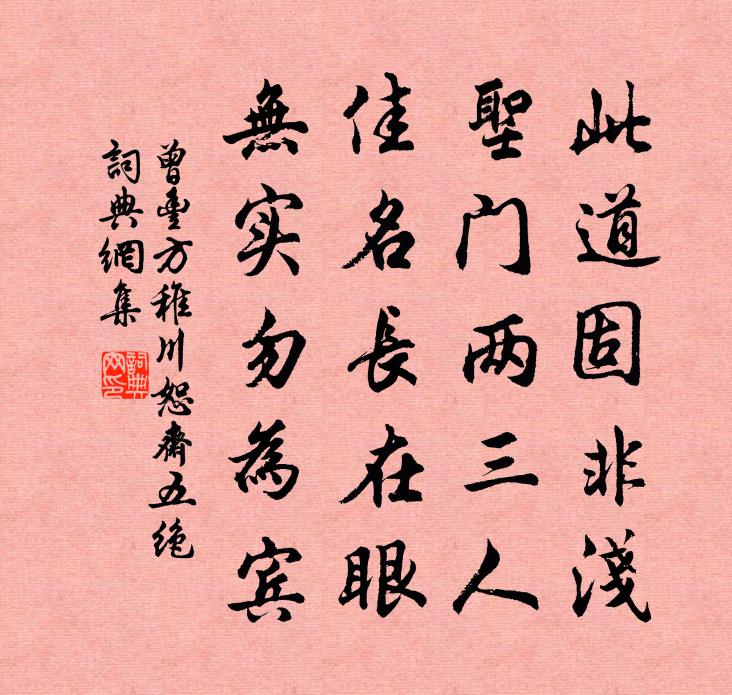 此道固非淺
聖门两三人
佳名長在眼
無实勿為宾
曾豊方稚川恕齋五绝
詞典網集
詞典网印